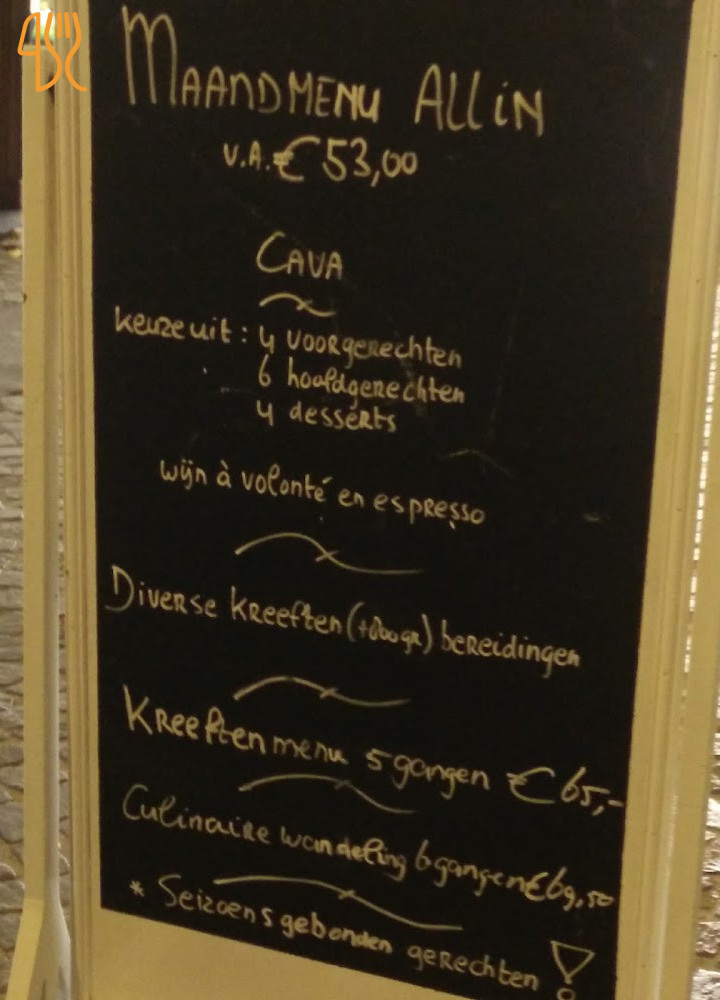 MAANDMENU ALL iN
V.A. € 53,00
CAVA
keuze uit : 4 voorgerechten
6 hoofdgerechten
4 desserts
wijn à volonté en espresso
Diverse kreeften (+600gr) bereidingen
Kreeftenmenu 5 gangen € 65,-
Culinaire wandeling 6 gangen € 69,50
* Seizoensgebonden gerechten !